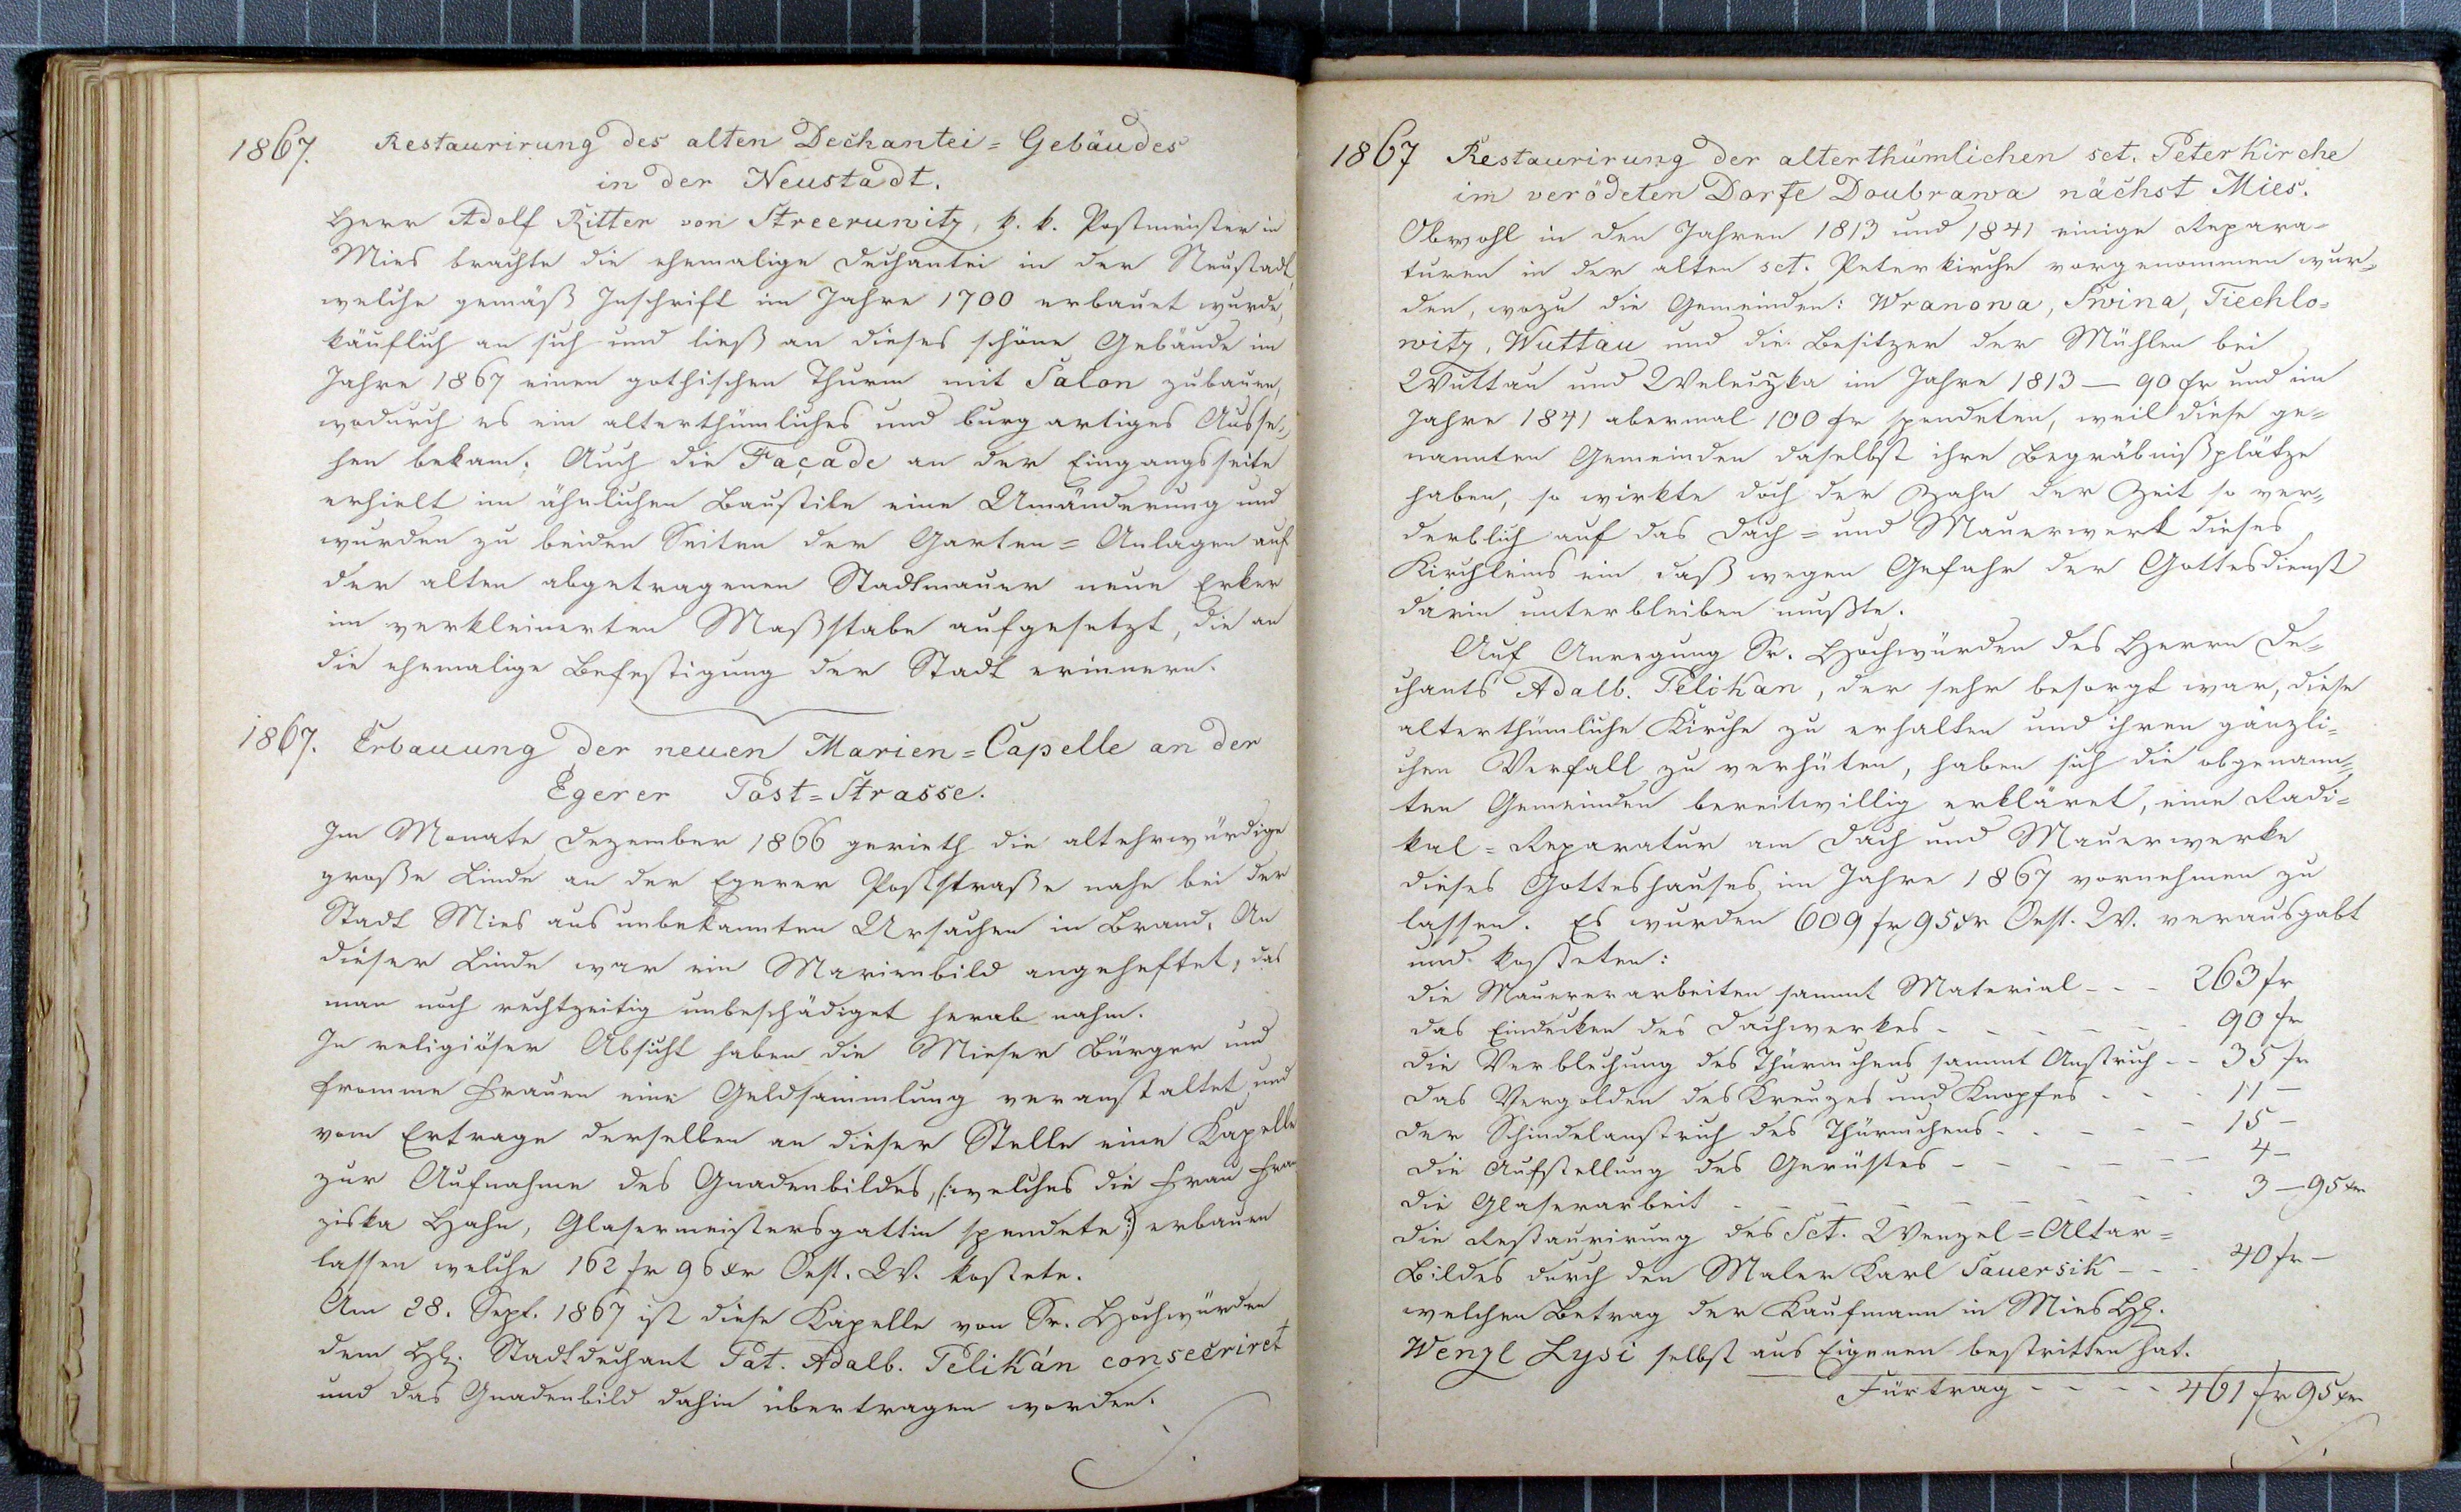 1867. Restaurirung des alten Dechantei=Gebäudes
in der Neustadt.
Herr Adolf Ritter von Streeruwitz, k. k. Postmeister in
Mies brachte die ehemalige Dechantei in der Neustadt,
welche gemäß Inschrift im Jahre 1700 erbauet wurde,
käuflich an sich und ließ an dieses schöne Gebäude im
Jahre 1867 einen gothischen Thurm mit Salon zubauen,
wodurch es ein alterthümliches und burgartiges Ausse=
hen bekam; Auch die Façade an der Eingangsseite
erhielt im ähnlichen Baustile eine Umänderung und
wurden zu beiden Seiten der Garten=Anlagen auf
der alten abgetragenen Stadtmauer neue Erker
im verkleinerten Maßstabe aufgesetzt, die an
die ehemalige Befestigung der Stadt erinnern.
1867. Erbauung der neuen Marien=Capelle an der
Egerer Post=Strasse.
Im Monate Dezember 1866 gerieth die altehrwürdige
große Linde an der Egerer Poststraße nahe bei der
Stadt Mies aus unbekannten Ursachen in Brand. An
dieser Linde war ein Marienbild angeheftet, das
man noch rechtzeitig unbeschädiget herab nahm.
In religiöser Absicht haben die Mieser Bürger und
fromme Frauen eine Geldsammlung veranstaltet und
vom Ertrage derselben an dieser Stelle eine Kapelle
zur Aufnahme des Gnadenbildes, (:welches die Frau Fran
ziska Hahn, Glasermeistersgattin spendete:) erbauen
lassen welche 162 fr 96 xr Oest. W. kostete.
Am 28. Sept. 1867 ist diese Kapelle von Sr. Hochwürden
dem HH. Stadtdechant Pat. Adalb. Pelikán consecriret
und das Gnadenbild dahin übertragen worden.
1867 Restaurirung der alterthümlichen sct. Peterkirche
im verödeten Dorfe Doubrawa nächst Mies.
Obwohl in den Jahren 1813 und 1841 einige Repara=
turen in der alten sct. Peterkirche vorgenommen wur=
den, wozu die Gemeinden: Wranowa, Swina, Tiechlo=
witz, Wuttau und die Besitzer der Mühlen bei
Wuttau und Weleuzka im Jahre 1813 — 90 fr und im
Jahre 1841 abermal 100 fr spendeten, weil diese ge=
nannten Gemeinden daselbst ihre Begräbnißplätze
haben, so wirkte doch der Zahn der Zeit so ver=
derblich auf das Dach= und Mauerwerk dieses
Kirchleins ein, daß wegen Gefahr der Gottesdienst
darin unterbleiben mußte.
Auf Anregung Sr. Hochwürden des Herrn De=
chants Adalb. Pelikan, der sehr besorgt war, diese
alterthümliche Kirche zu erhalten und ihren gänzli=
chen Verfall zu verhüten, haben sich die obgenann=
ten Gemeinden bereitwillig erkläret, eine Radi=
kal=Reparatur am Dach und Mauerwerke
dieses Gotteshauses im Jahre 1867 vornehmen zu
lassen. Es wurden 609 fr 95 xr Oest. W. verausgabt
und kosteten:
die Maurerarbeiten sammt Material - - - 263 fr
das Eindecken des Dachwerkes - - - - - - 90 fr
die Verblechung des Thürmchens sammt Anstrich - - 35 fr
das Vergolden des Kreuzes und Knopfes - - - 11 —
der Schindelanstrich des Thürmchens - - - - - 15 —
die Aufstellung des Gerüstes - - - - - - 4 —
die Glaserarbeit - - - - - - - - 3 — 95 xr
die Restaurirung des Sct. Wenzel=Altar=
Bildes durch den Maler Karl Sauersik - - - 40 fr —
welchen Betrag der Kaufmann in Mies HH.
Wenzl Lysi selbst aus Eigenen bestritten hat.
Fürtrag - - - - 461 fr 95 xr